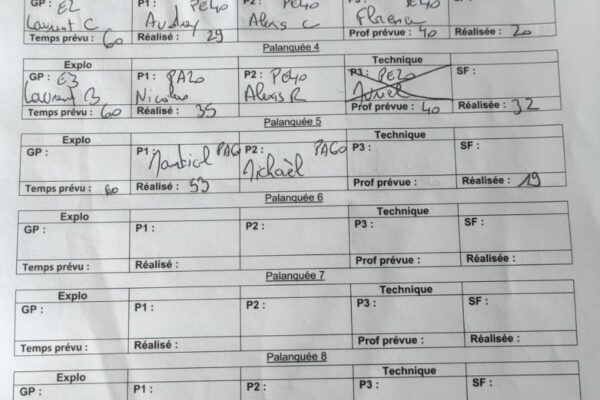 GP : E2 P1 : PE40 P2 : PE40
Laurent C Audrey Alexis C Florence
Temps prévu : 60 Réalisé : 29 Prof prévue : 40 Réalisée : 20
Palanquée 4
Explo Technique
GP : E3 P1 : PA20 P2 : PE40 P3 : PE20 SF :
Laurent B Nicolas Alexis R
Temps prévu : 60 Réalisé : 35 Prof prévue : 40 Réalisée : 32
Palanquée 5
Explo Technique
GP : P1 PA60 P2 : PA60 P3 : SF :
Michaël
Temps prévu : 60 Réalisé : 53 Prof prévue : Réalisée : 19
Palanquée 6
Explo Technique
GP : P1 : P2 : P3 : SF :
Temps prévu : Réalisé : Prof prévue : Réalisée :
Palanquée 7
Explo Technique
GP : P1 : P2 : P3 : SF :
Temps prévu : Réalisé : Prof prévue : Réalisée :
Palanquée 8
Explo Technique
GP : P1 : P2 : P3 : SF :